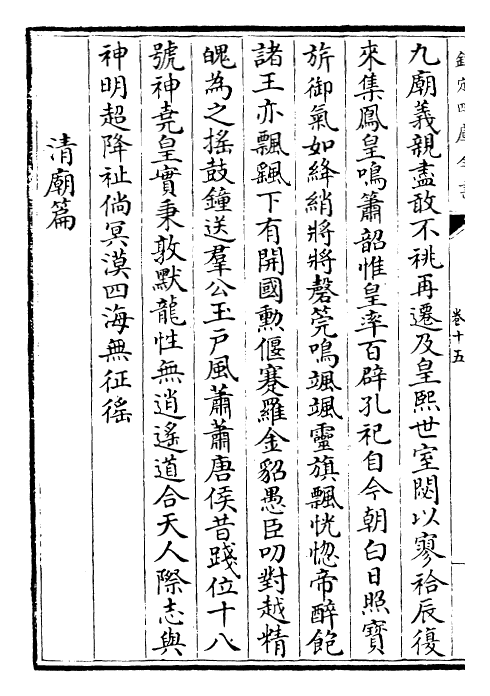 欽定四庫全書
卷十五
九廟義親盡敢不祧再遷及皇熙世室閟以寥祫辰復
來集鳳皇鳴簫韶惟皇率百辟孔祀自今朝白日照寶
旂御氣如絳綃將將磬筦鳴颯颯靈旗飄恍惚帝醉飽
諸王亦飄飖下有開國勲偃蹇羅金貂愚臣叨對越精
魄為之搖鼓鐘送羣公玉戸風蕭蕭唐侯昔踐位十八
號神堯皇實秉敦默龍性無逍遙道合天人際志與
神明超降祉倘冥漠四海無征徭
清廟篇